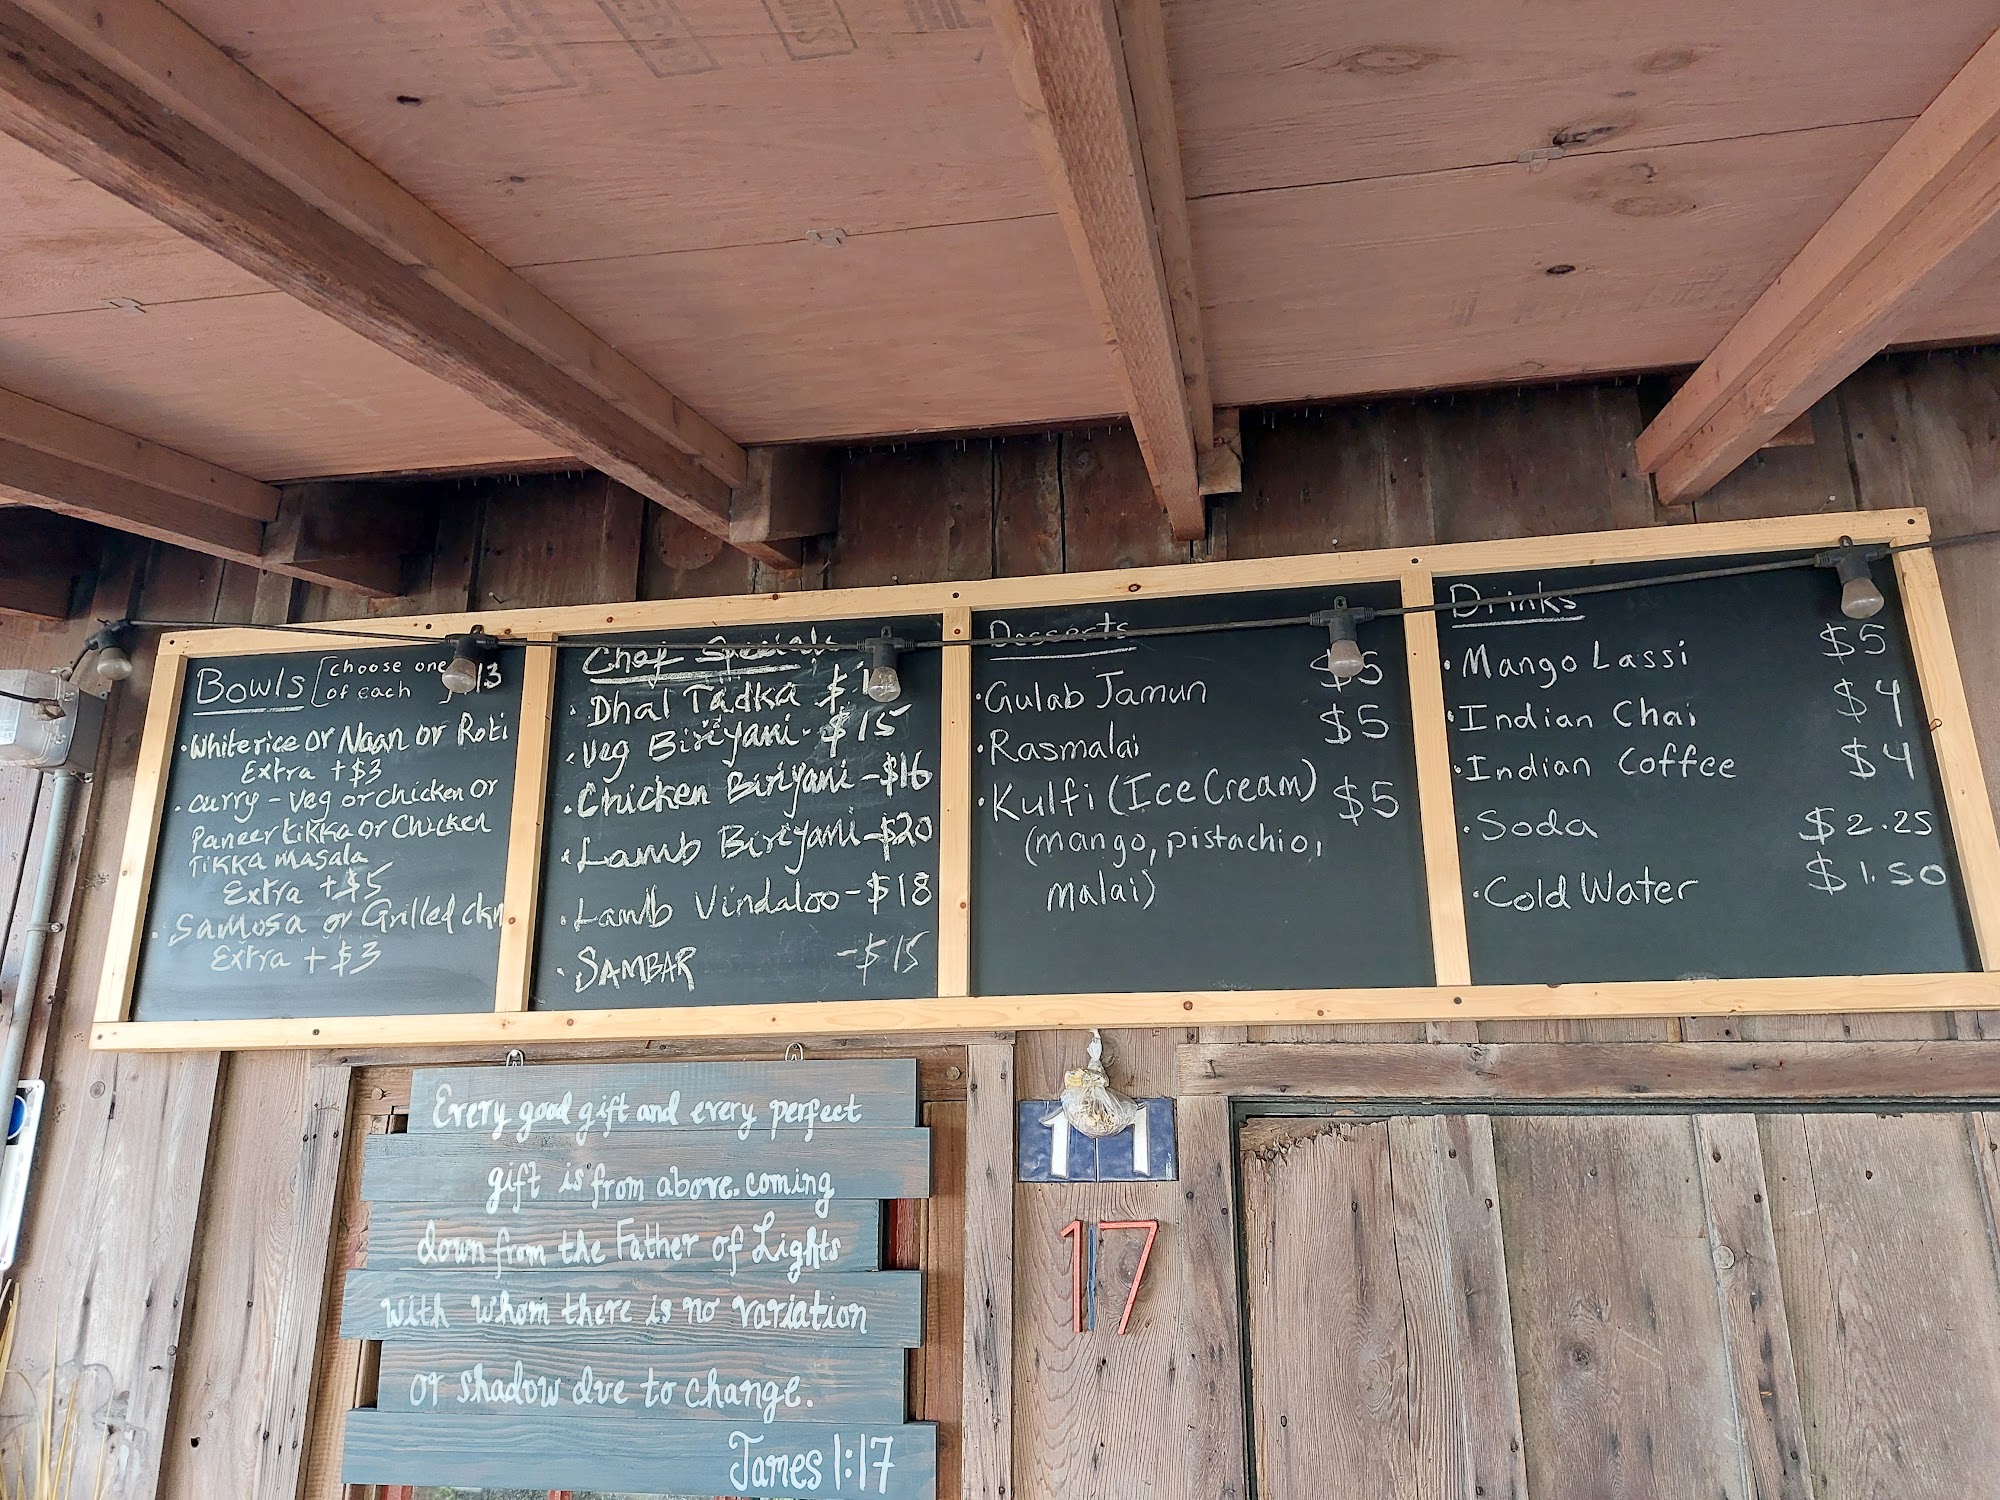 Bowls [choose one of each] $13
• White rice or Naan or Roti
Extra + $3
• Curry - Veg or Chicken or
Paneer tikka or Chicken
Tikka masala
Extra + $5
• Samosa or Grilled ckn
Extra + $3
Chef Specials
• Dhal Tadka $1
• Veg Biriyani - $15
• Chicken Biriyani - $16
• Lamb Biriyani - $20
• Lamb Vindaloo - $18
• SAMBAR - $15
Desserts
• Gulab Jamun $5
• Rasmalai $5
• Kulfi (Ice Cream) $5
(mango, pistachio,
malai)
Drinks
• Mango Lassi $5
• Indian Chai $4
• Indian Coffee $4
• Soda $2.25
• Cold Water $1.50
Every good gift and every perfect
gift is from above. coming
down from the Father of Lights
with whom there is no variation
or shadow due to change.
James 1:17
11
17